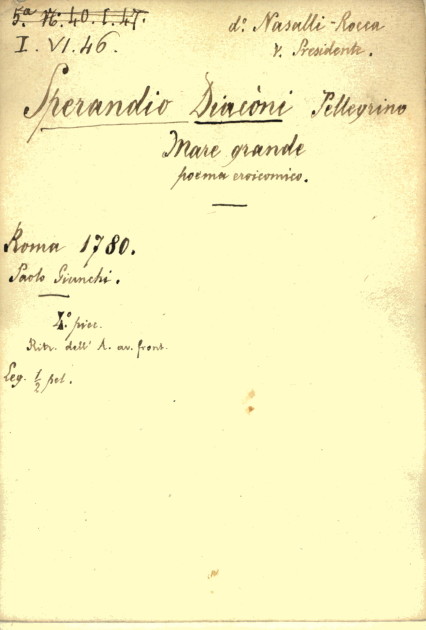 5.ª 16. 40. I. 47.
I. VI. 46.
d.º Nasalli-Rocca
v. Presidente.
Sperandio Diacóni Pellegrino
Mare grande
poema eroicomico.
Roma 1780.
Paolo Giunchi.
4.º picc.
Ritr. dell' A. av. front.
Leg. ½ pel.